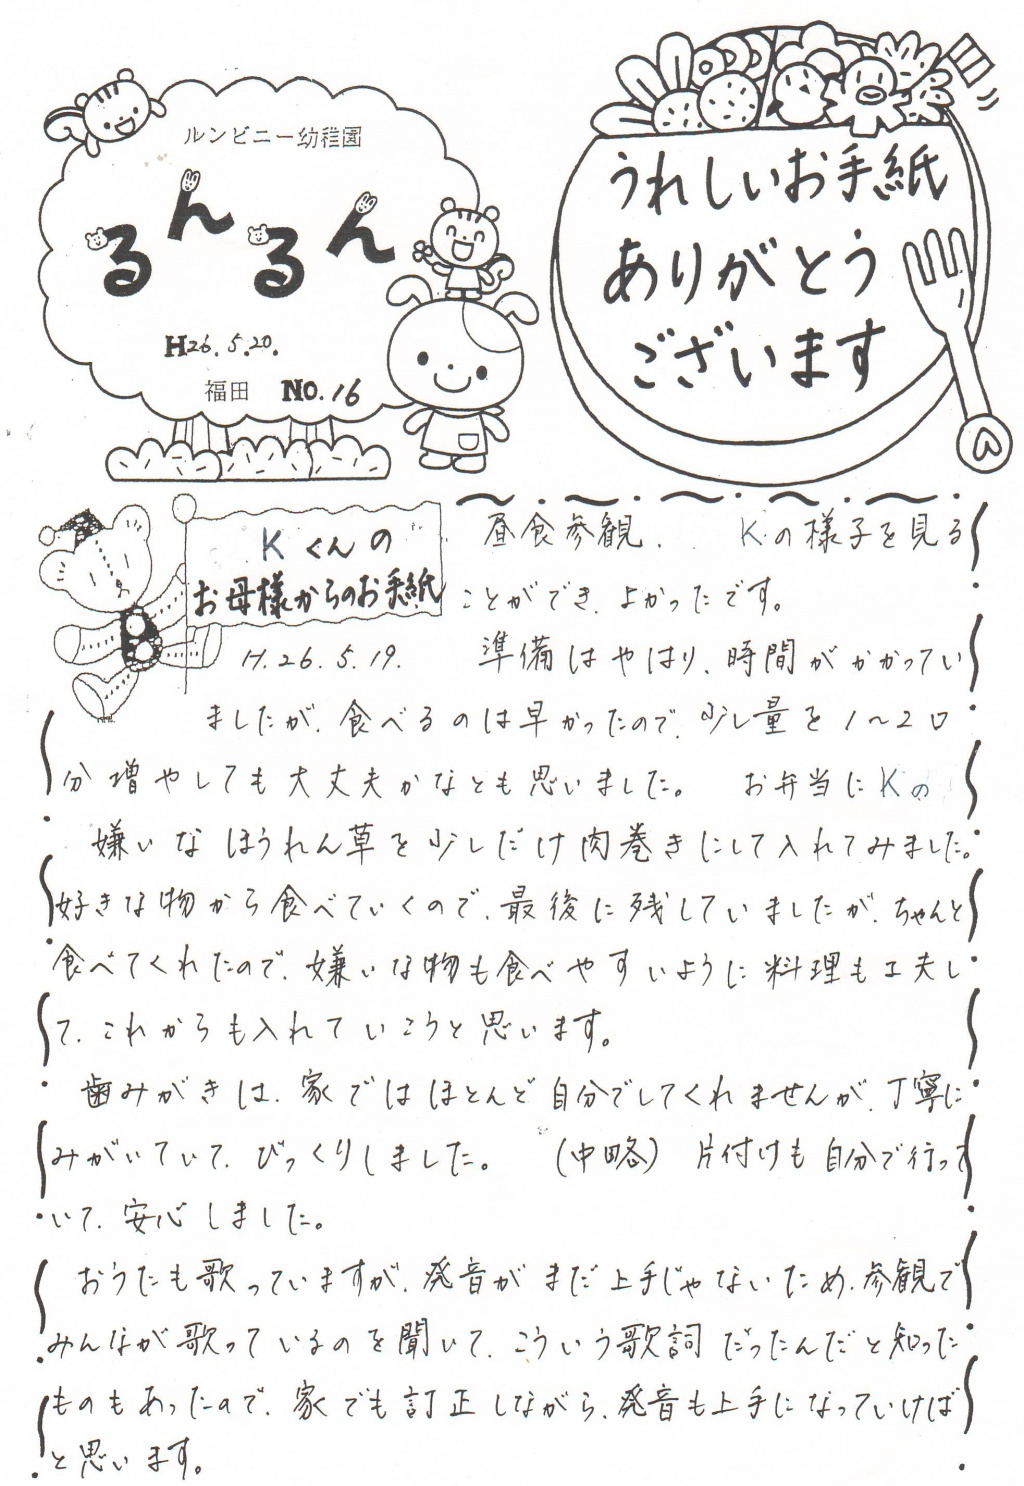 ルンビニー幼稚園
るんるん
H26.5.20.
福田 No.16
うれしいお手紙
ありがとう
ございます
Kくんの
お母様からのお手紙
H.26.5.19.
昼食参観、 Kの様子を見る
ことができ、よかったです。
準備はやはり、時間がかかってい
ましたが、食べるのは早かったので、少し量を1～2口
分増やしても大丈夫かなとも思いました。 お弁当にKの
嫌いなほうれん草を少しだけ肉巻きにして入れてみました。
好きな物から食べていくので、最後に残していましたが、ちゃんと
食べてくれたので、嫌いな物も食べやすいように料理も工夫し
て、これからも入れていこうと思います。
歯みがきは、家ではほとんど自分でしてくれませんが、丁寧に
みがいていて、びっくりしました。 (中略) 片付けも自分で行って
いて、安心しました。
おうたも歌っていますが、発音がまだ上手じゃないため、参観で
みんなが歌っているのを聞いて、こういう歌詞だったんだと知った
ものもあったので、家でも訂正しながら、発音も上手になっていけば
と思います。